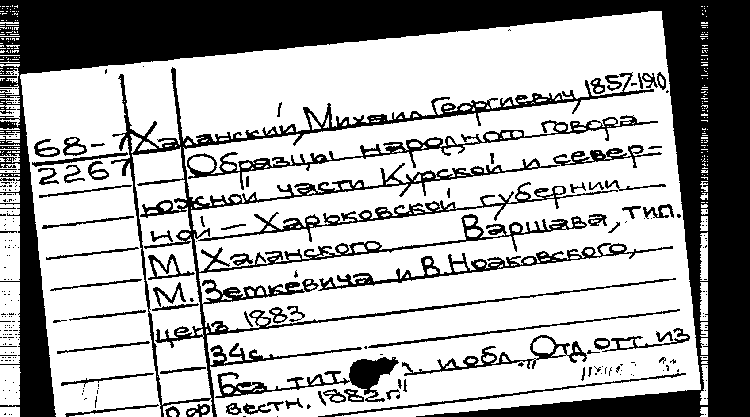 68-7 Халанский, Михаил Георгиевич, 1857-1910
2267 Образцы народного говора
южной части Курской и север=
ной - Харьковской губернии.
М. Халанского. Варшава, тип.
М. Земкевича и В. Ноаковского,
ценз 1883
34с.
Без. тит. и обл. "Отд. отт. из
вестн. 1883г."